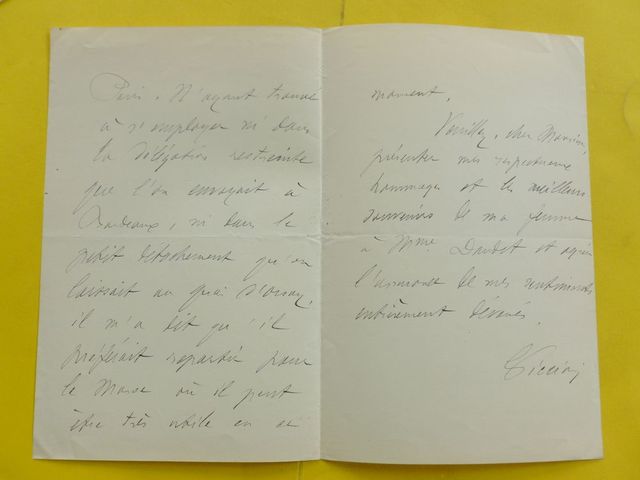 Paris. N'ayant trouvé
à s'employer ni dans
la délégation restreinte
que l'on envoyait à
Bordeaux, ni dans le
petit détachement qu'on
laissait au quai d'Orsay,
il m'a dit qu'il
préférait repartir pour
le Maroc où il peut
être très utile en ce
moment.
Veuillez, cher Monsieur,
présenter mes respectueux
hommages et les meilleurs
souvenirs de ma femme
à Mme. Daudet et agréer
l'assurance de mes sentiments
entièrement dévoués.